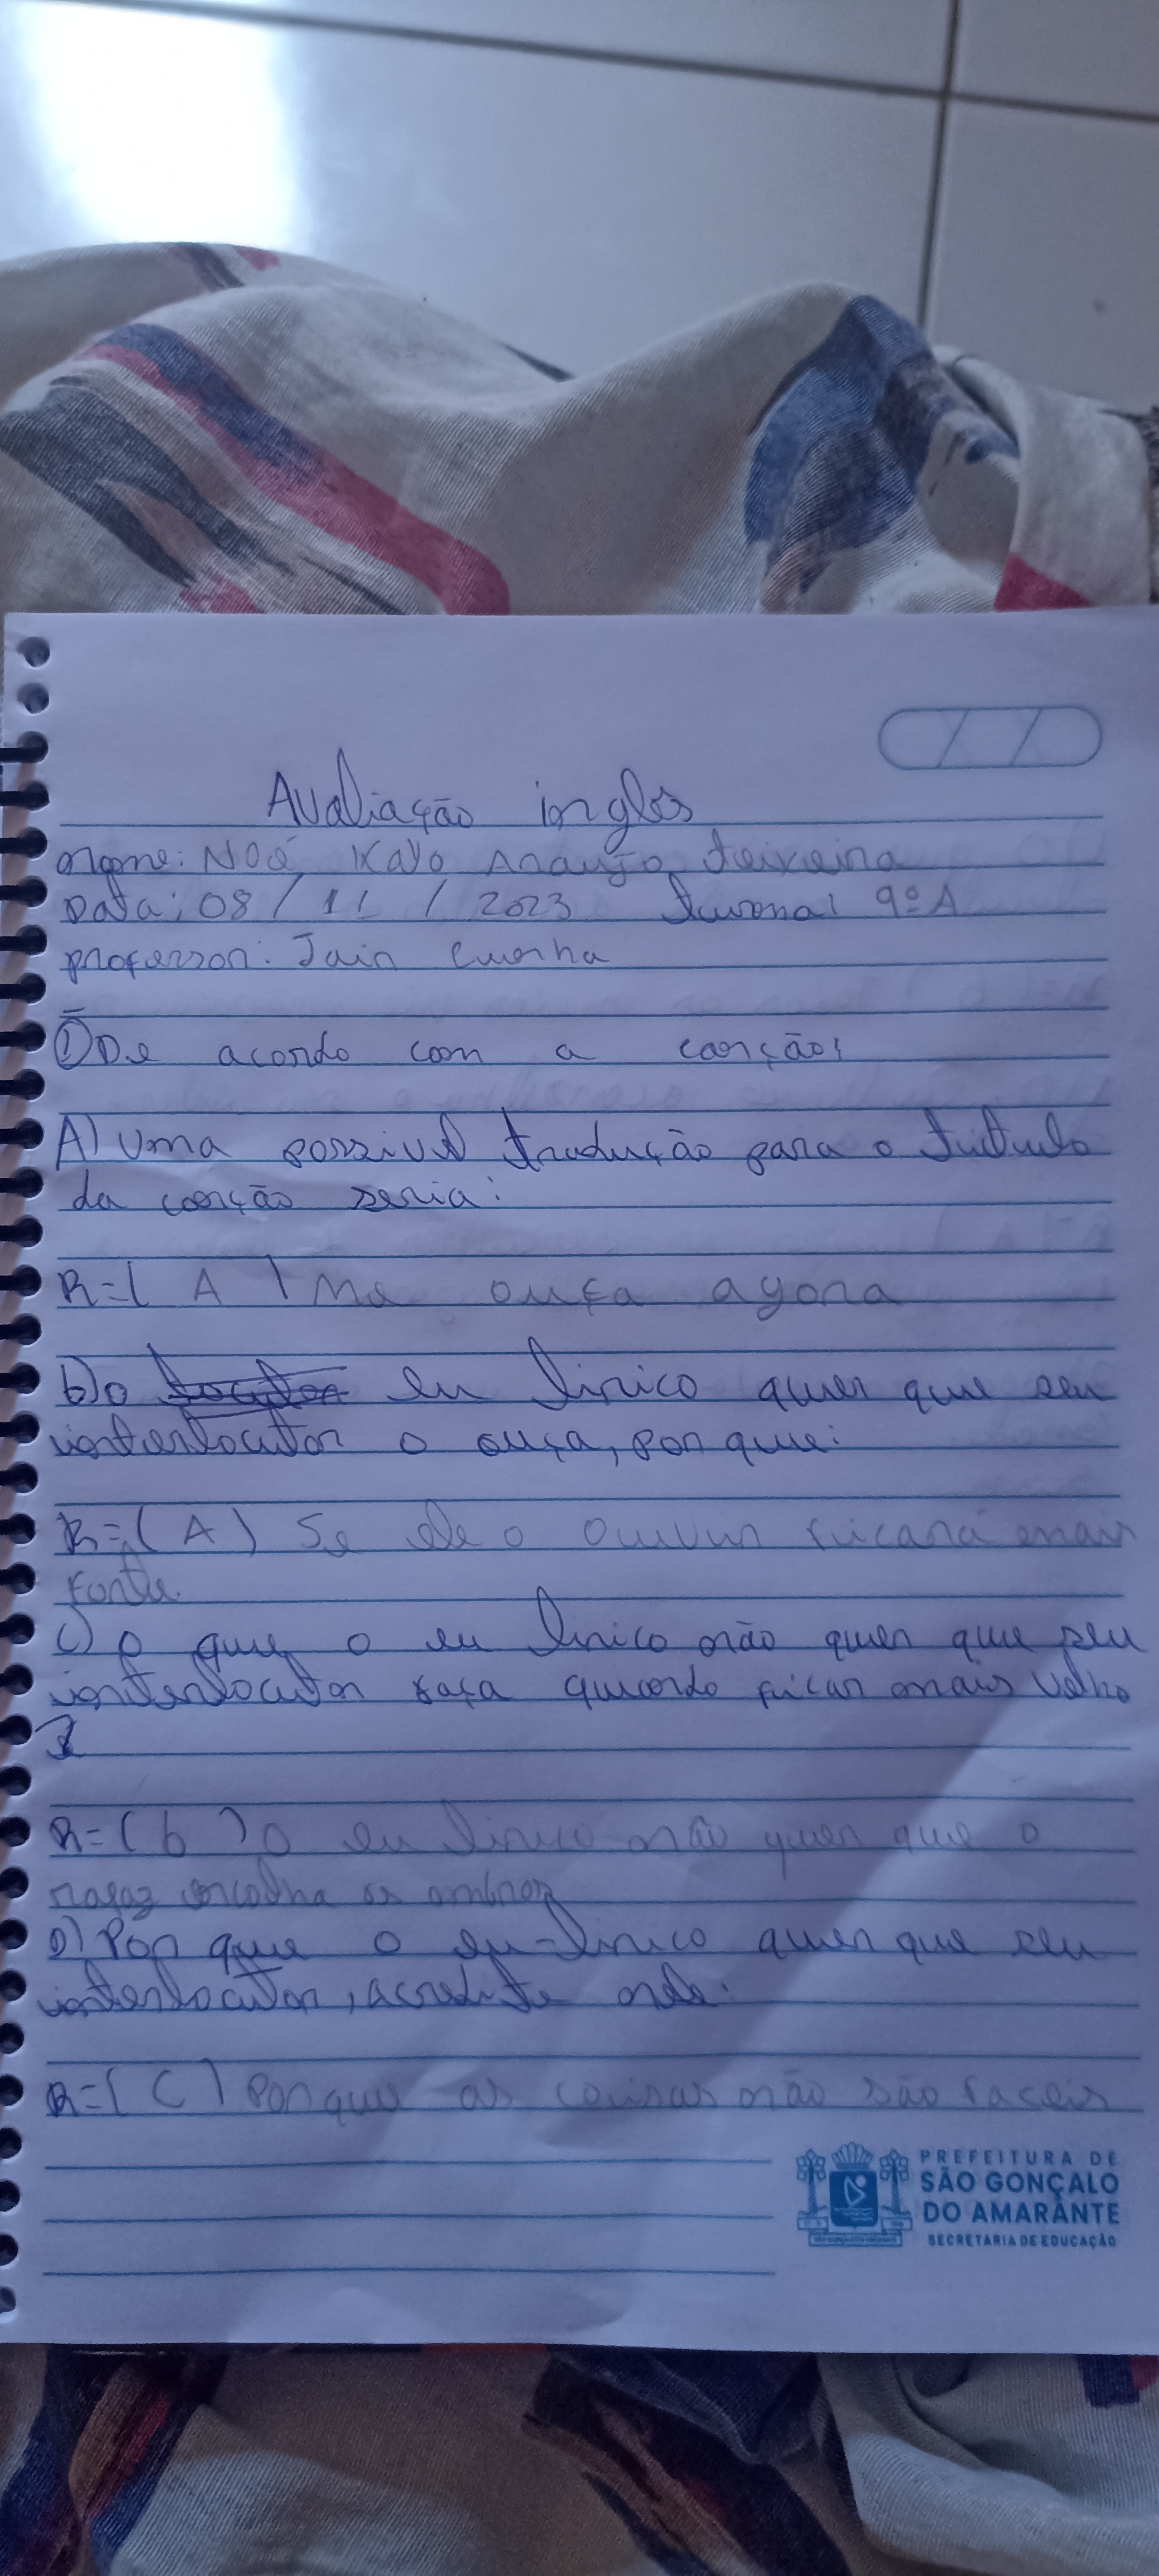 Avaliação inglês
nome: Noé Kayo Araujo Teixeira
Data: 08 / 11 / 2023 turma: 9º A
professor: Jair Cunha
① De acordo com a canção:
A) uma possivel tradução para o titulo
da canção seria:
R=( A ) Me ouça agora
b) o locutor eu lirico quer que seu
interlocutor o ouça, por que:
R=( A ) Se ele o ouvir ficará mais
forte.
c) o que o eu lirico não quer que seu
interlocutor faça quando ficar mais velho
?
R=( b ) o eu lirico não quer que o
rapaz encolha os ombros
D) Por que o eu-lirico quer que seu
interlocutor, acredite nele:
R=( C ) Porque as coisas não são faceis
PREFEITURA DE
SÃO GONÇALO
DO AMARANTE
SECRETARIA DE EDUCAÇÃO